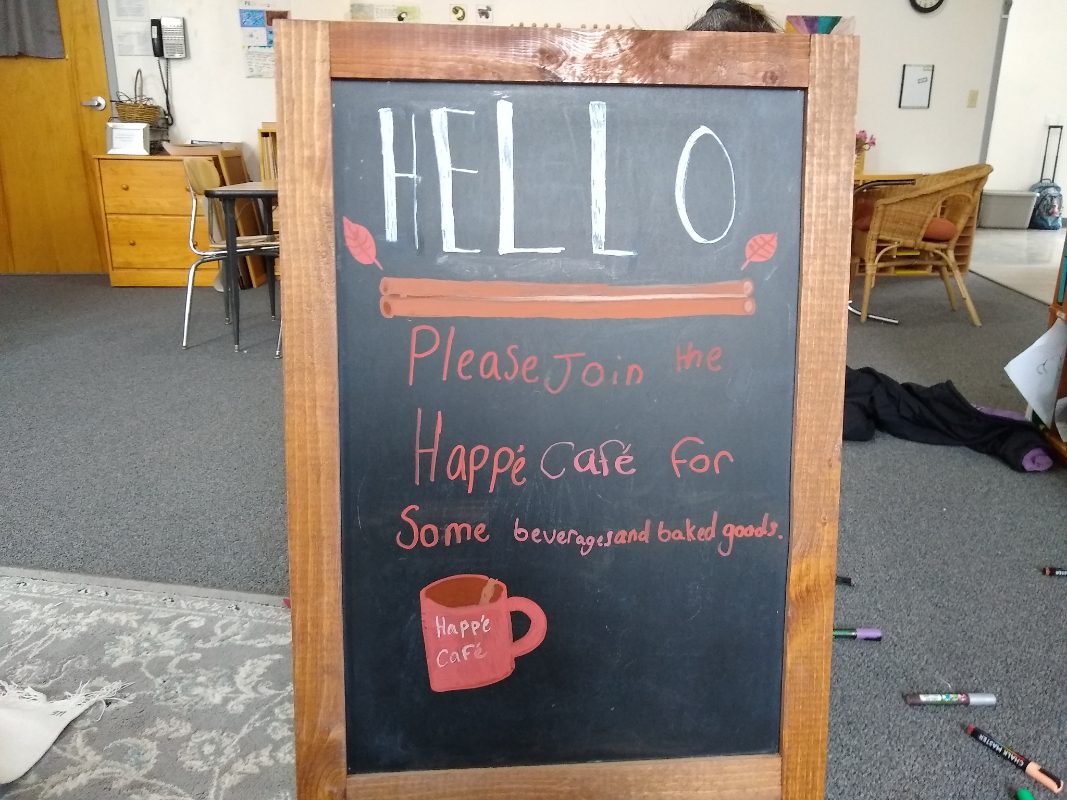 HELLO
Please Join the
Happé Café For
Some beverages and baked goods.
Happé
Café
CHALK MASTER